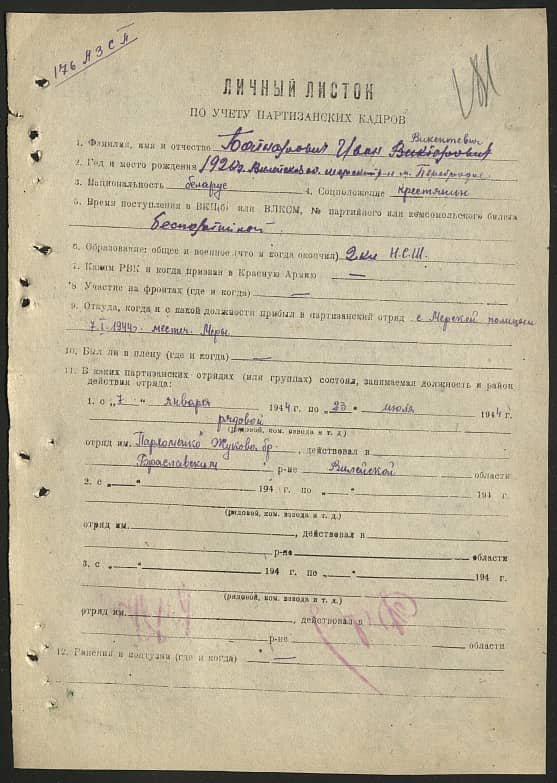 176 АЗСП
ЛИЧНЫЙ ЛИСТОК
ПО УЧЕТУ ПАРТИЗАНСКИХ КАДРОВ
Викентьевич
1. Фамилия, имя и отчество Иван Викторович
2. Год и место рождения 1926г. Вилейская м. Перебродье
3. Национальность беларус 4. Соцположение крестьянин
5. Время поступления в ВКП(б) или ВЛКСМ, № партийного или комсомольского билета
беспартийной
6. Образование: общее и военное (что и когда окончил) 2 кл Н.С.Ш.
7. Каким РВК и когда призван в Красную Армию —
8. Участие на фронтах (где и когда) —
9. Откуда, когда и с какой должности прибыл в партизанский отряд с Мерской полиции
7.I.1944г. местеч. Меры
10. Был ли в плену (где и когда) —
11. В каких партизанских отрядах (или группах) состоял, занимаемая должность и район
действия отряда:
1. с „7 “ января 1944 г. по „23 “ июля 1944 г.
рядовой
(рядовой, ком. взвода и т. д.)
отряд им. Пархоменко Жукова бр, действовал в
Браславским р-не Вилейской области
2. с „ — “ 194 г. по „ — “ 194 г.
(рядовой, ком. взвода и т. д.)
отряд им. , действовал в
р-не области
3. с „ — “ 194 г. по „ — “ 194 г.
(рядовой, ком. взвода и т. д.)
отряд им. , действовал в
р-не области
12. Ранения и контузии (где и когда) —